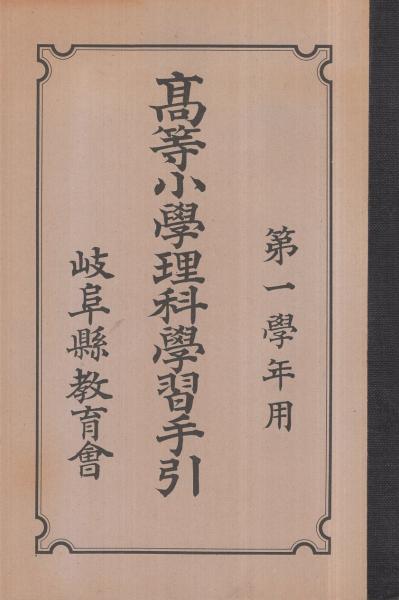 第一學年用
髙等小學理科學習手引
岐阜縣教育會